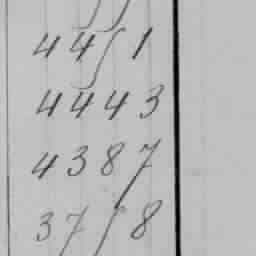 4451
4443
4387
3758